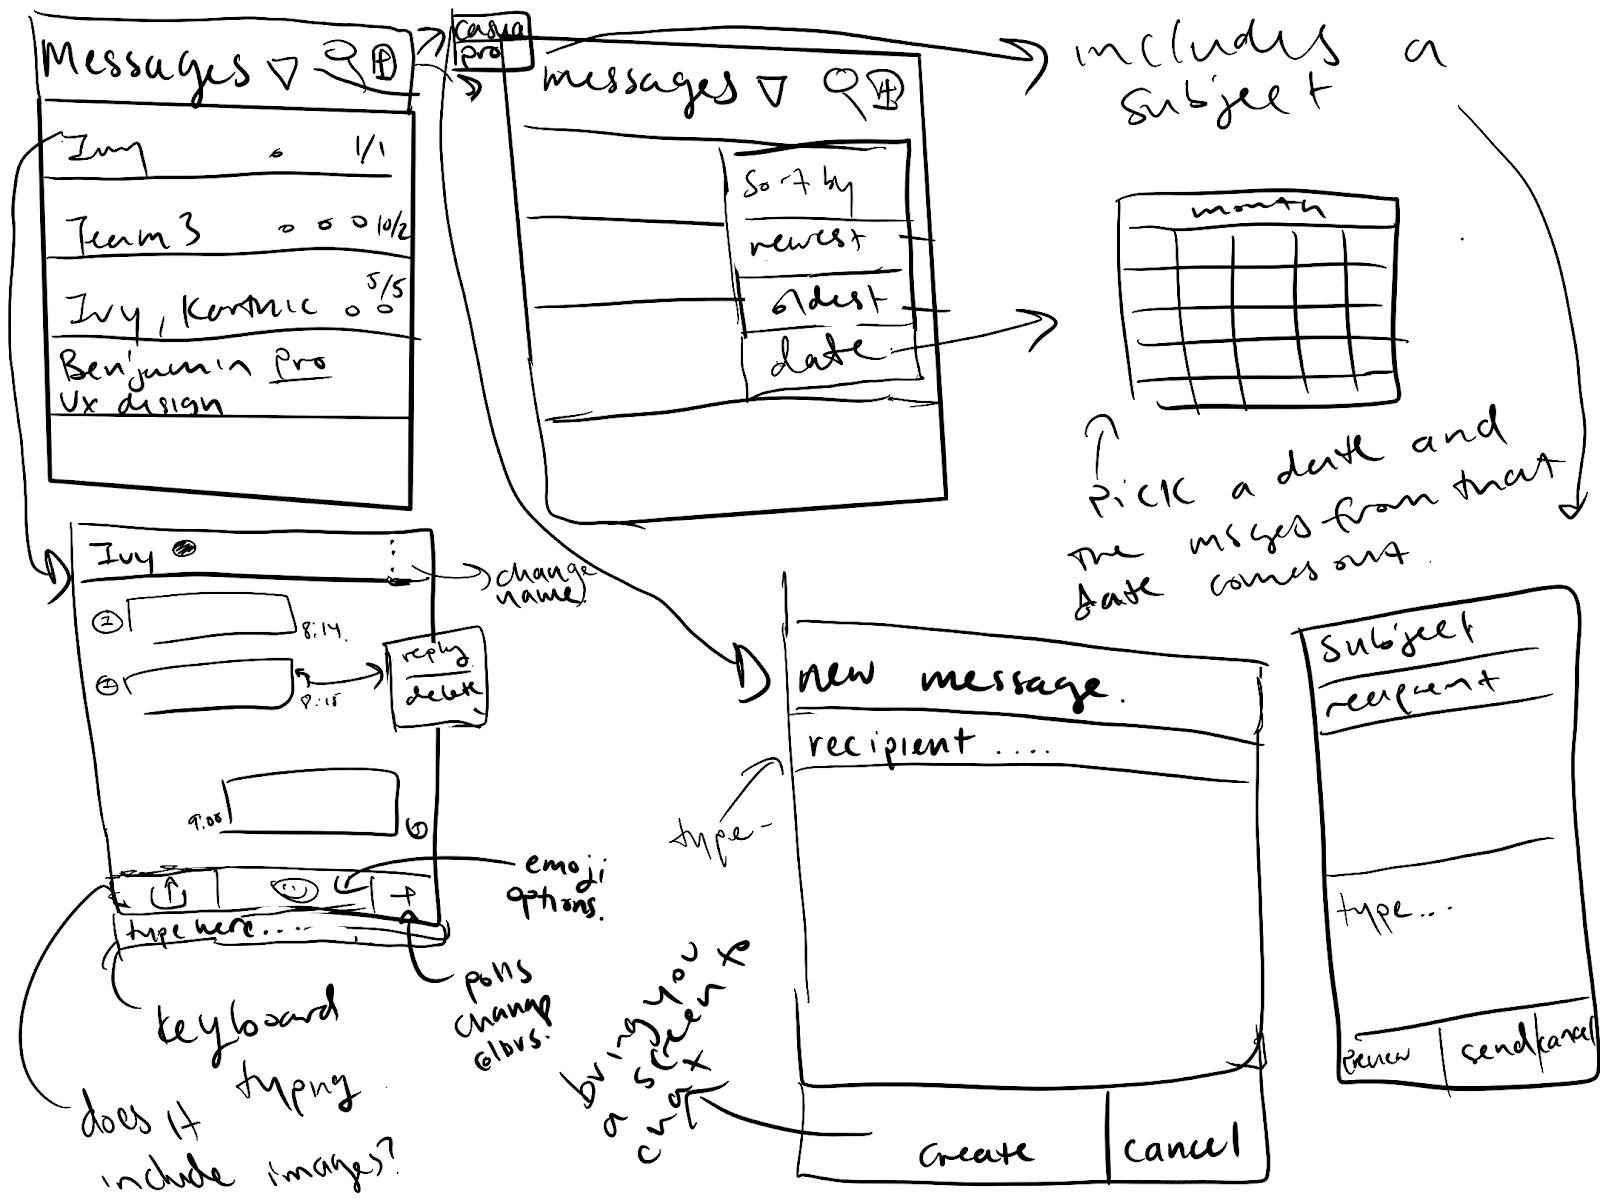 Messages
Ivy 1/1
Team 3 10/2
5/5
Ivy, Karthic
Benjamin pro
Ux design
pro
messages
Sort by
newest
oldest
date
includes a
subject
month
pick a date and
the msges from that
date comes out.
Ivy
change
name
8:14
8:15
reply
delete
9:00
type here....
emoji
options.
polls
change
colors.
keyboard
typing
does it
include images?
new message.
recipient ....
type-
bring you
a screen to
create
cancel
Subject
recipient
type...
preview
send
cancel